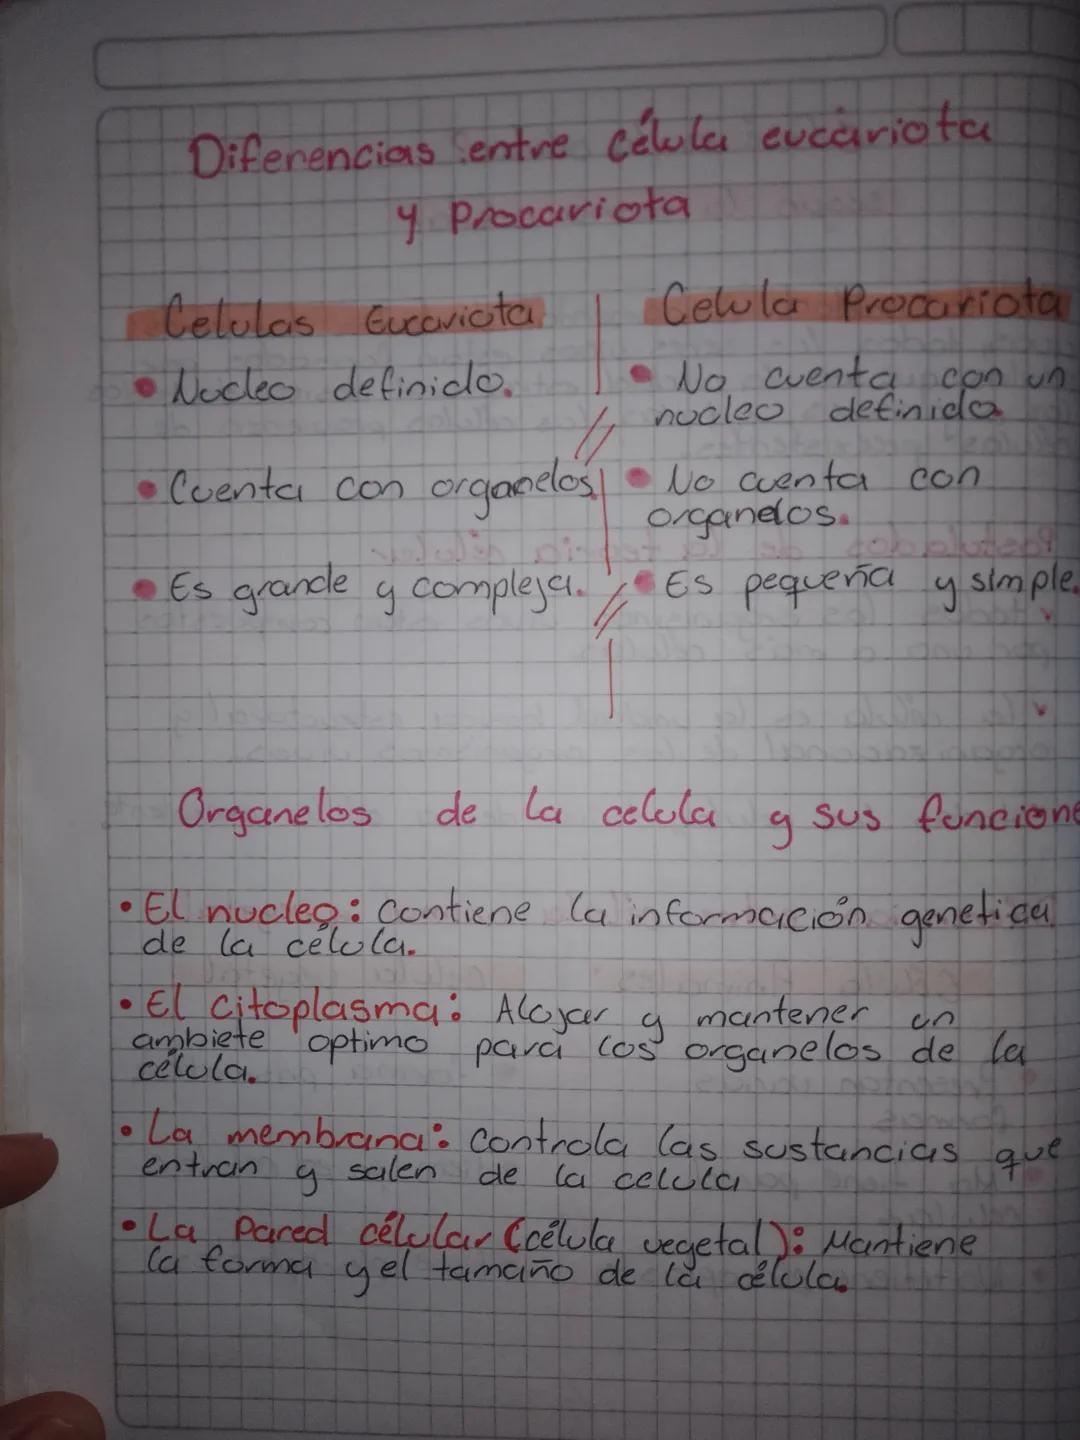 Diferencias entre célula eucariota
y Procariota
Celulas Eucariota
Celula Procariota
• Nucleo definido.
• No cuenta con un
nucleo definido
• Cuenta con organelos
• No cuenta con
organelos.
• Es grande y compleja.
• Es pequeña y simple.
Organelos de la celula y sus funcione
• El nucleo: contiene la información genetica
de la célula.
• El citoplasma: Alojar y mantener un
ambiete optimo para los organelos de la
célula.
• La membrana: controla las sustancias que
entran y salen de la celula
• La Pared célular (célula vegetal): Mantiene
la forma y el tamaño de la célula.